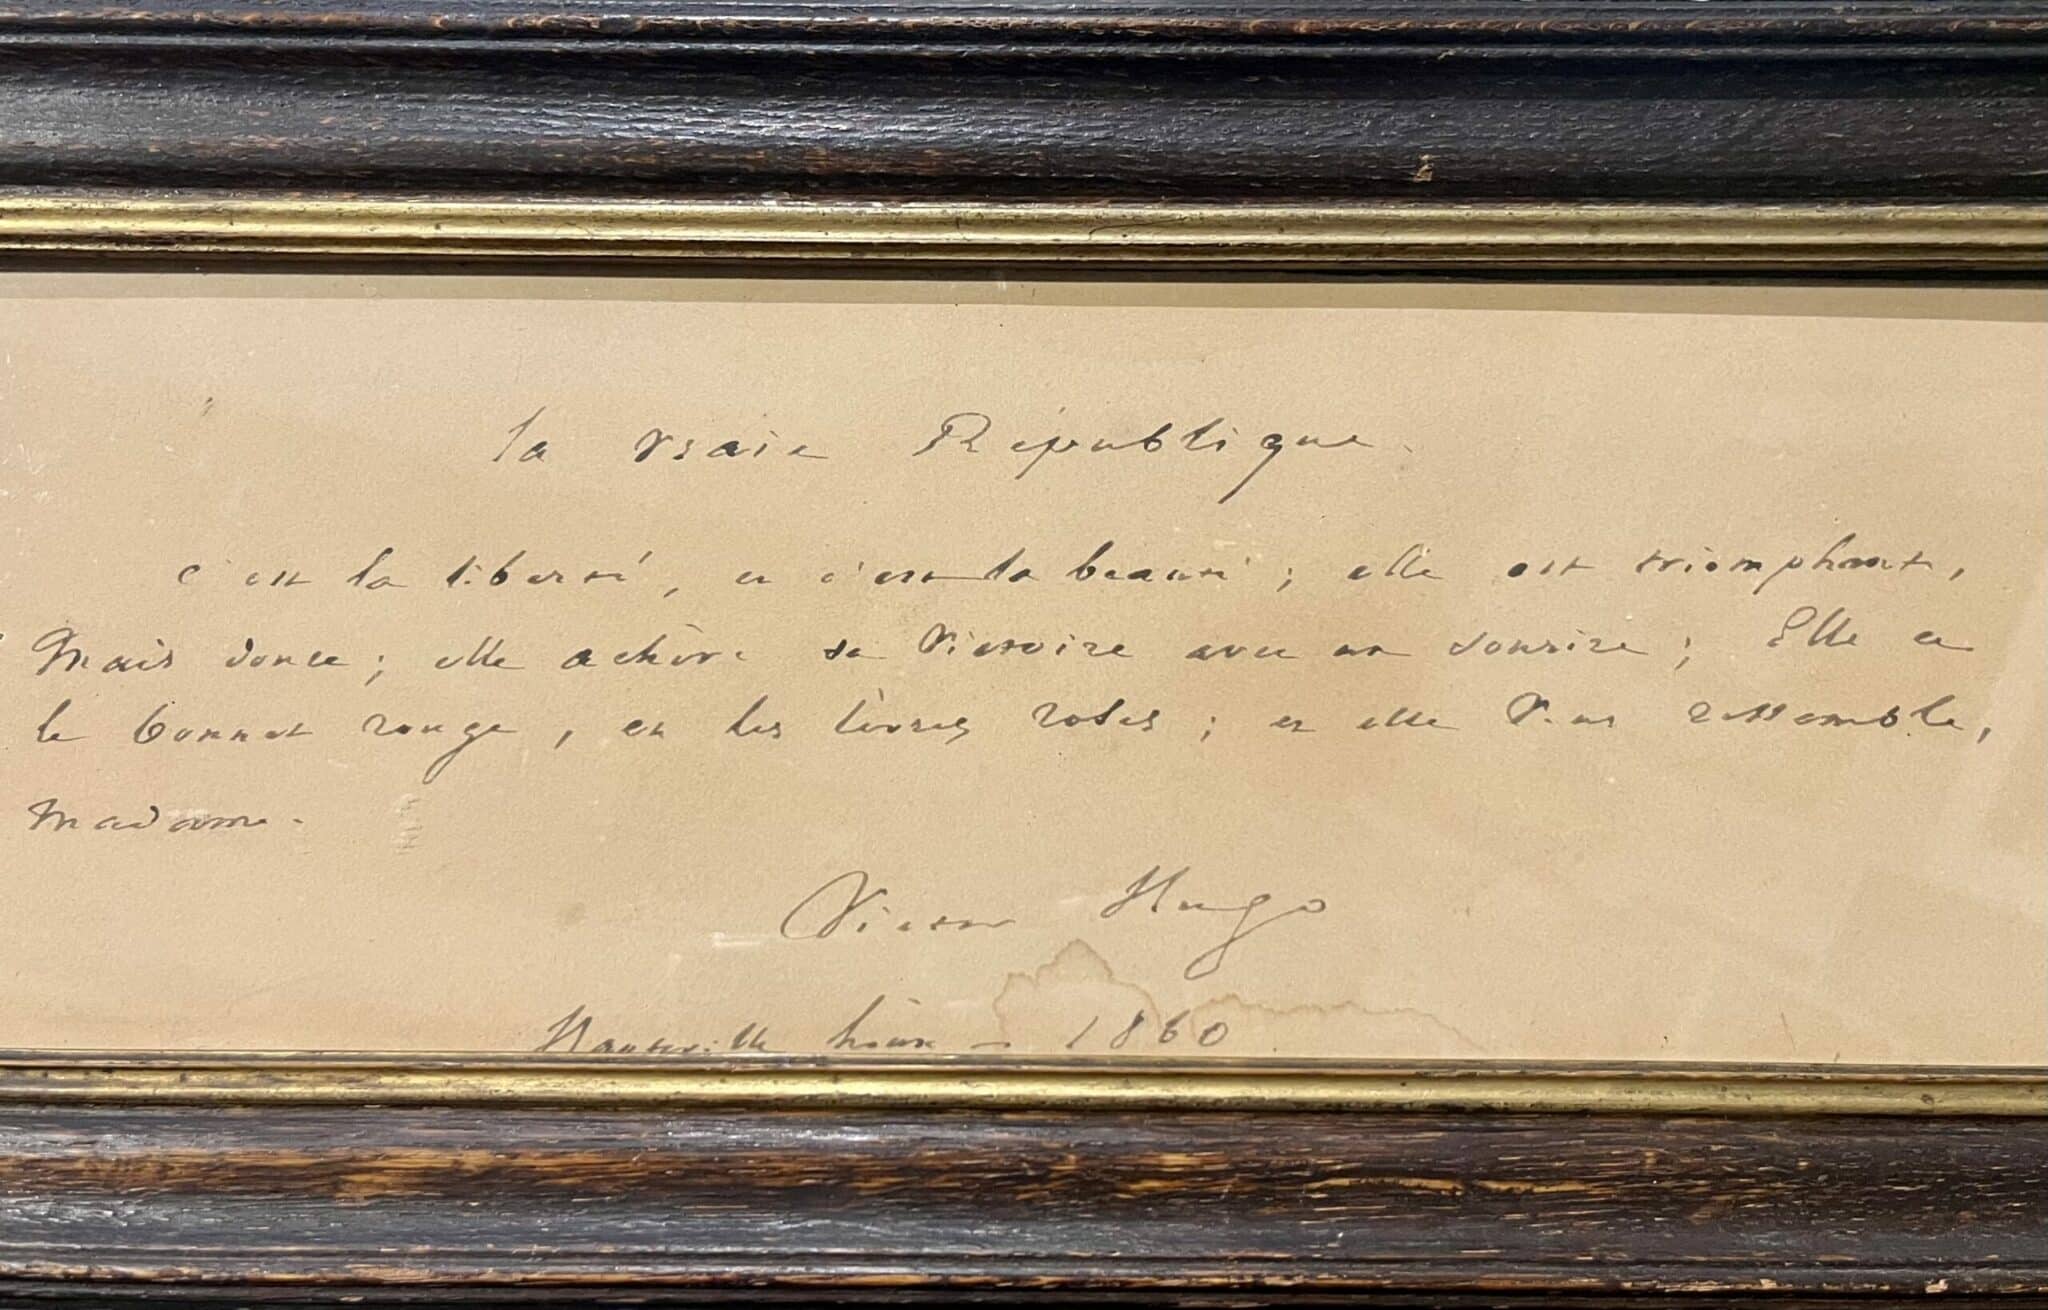 la vraie République
c'est la liberté, et c'est la beauté ; elle est triomphant,
Mais douce ; elle achève sa Victoire avec un sourire ; Elle a
le bonnet rouge, et les lèvres roses ; et elle Vous ressemble,
Madame.
Victor Hugo
Hauteville house – 1860